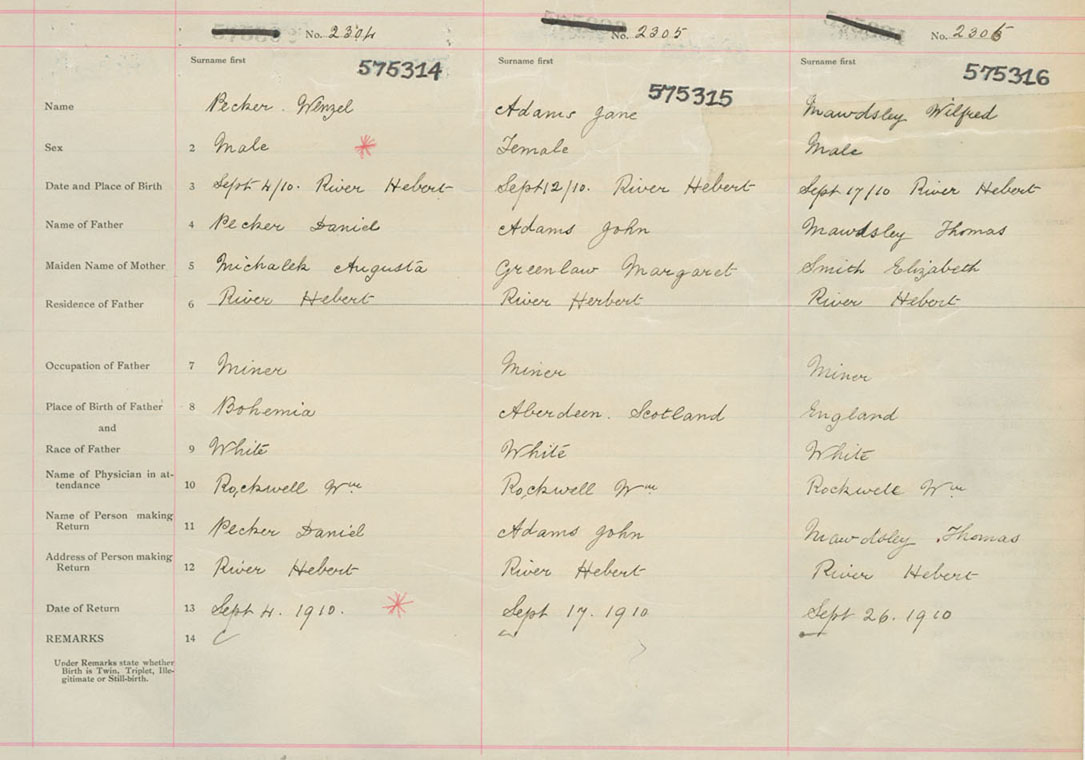 No. 2304 No. 2305 No. 2306
Surname first Surname first Surname first
575314 575315 575316
Name Pecker. Wenzel Adams Jane Mawdsley Wilfred
Sex 2 Male * Female Male
Date and Place of Birth 3 Sept 4/10. River Hebert Sept 12/10. River Hebert Sept 17/10 River Hebert
Name of Father 4 Pecker Daniel Adams John Mawdsley Thomas
Maiden Name of Mother 5 Michalek Augusta Greenlaw Margaret Smith Elizabeth
Residence of Father 6 River Hebert River Herbert River Hebert
Occupation of Father 7 Miner Miner Miner
Place of Birth of Father 8 Bohemia Aberdeen. Scotland England
and
Race of Father 9 White White White
Name of Physician in at-
tendance 10 Rockwell Wm Rockwell Wm Rockwell Wm
Name of Person making
Return 11 Pecker Daniel Adams John Mawdsley Thomas
Address of Person making
Return 12 River Hebert River Hebert River Hebert
Date of Return 13 Sept 4. 1910. * Sept 17. 1910 Sept 26. 1910
REMARKS 14
Under Remarks state whether
Birth is Twin, Triplet, Ille-
gitimate or Still-birth.